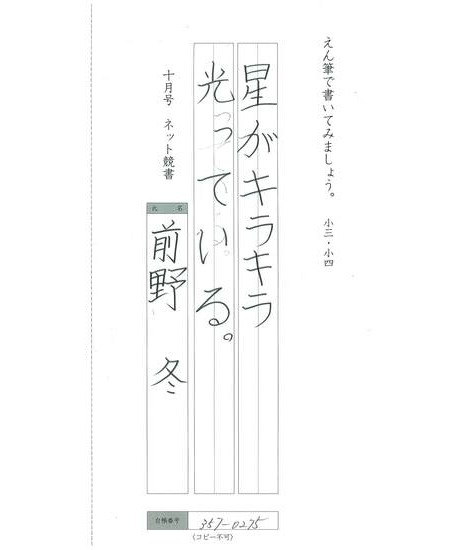 えん筆で書いてみましょう。　小三・小四
星がキラキラ
光っている。
十月号　ネット競書
氏　名
前野　冬
台帳番号
357-0275
(コピー不可)